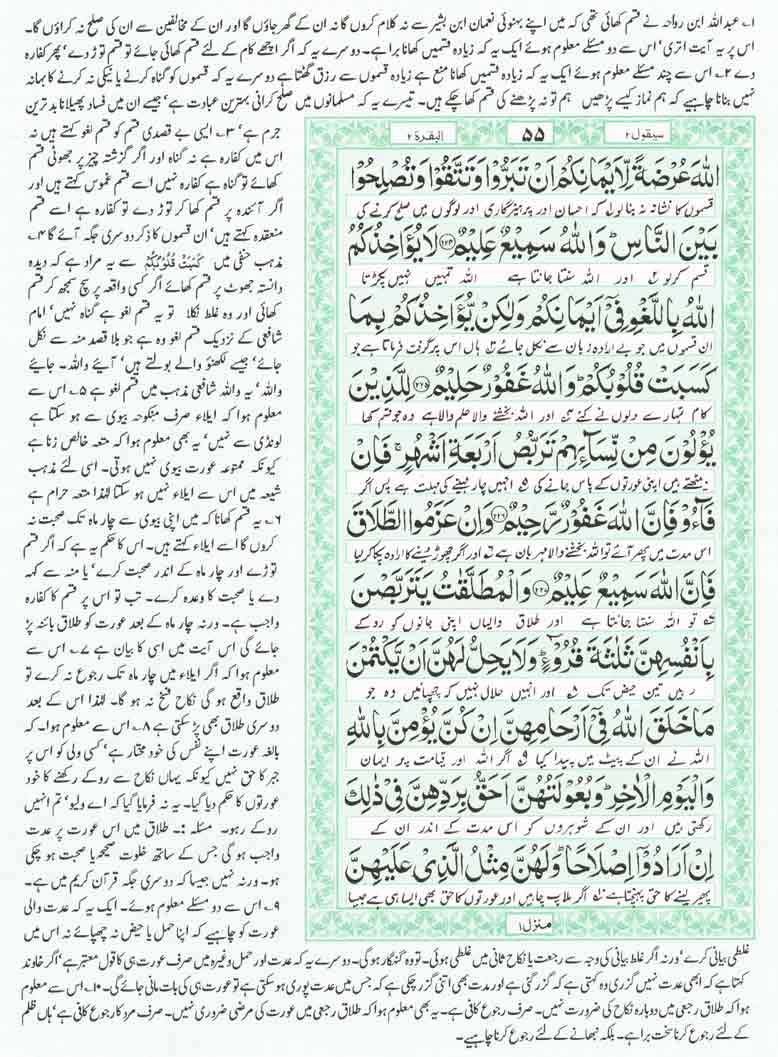 ۱؎ عبداللہ ابن رواحہ نے قسم کھائی تھی کہ میں اپنے بہنوئی نعمان ابن بشیر سے نہ کلام کروں گا نہ ان کے گھر جاؤں گا اور ان کے مخالفین سے ان کی صلح نہ کراؤں گا۔
اس پر یہ آیت اتری' اس سے دو مسئلے معلوم ہوئے ایک یہ کہ زیادہ قسمیں کھانا برا ہے۔ دوسرے یہ کہ اگر اچھے کام کے لئے قسم کھائی جائے تو قسم توڑ دے' پھر کفارہ
دے ۲؎ اس سے چند مسئلے معلوم ہوئے ایک یہ کہ زیادہ قسمیں کھانا منع ہے زیادہ قسموں سے رزق گھٹتا ہے دوسرے یہ کہ قسموں کو گناہ کرنے یا نیکی نہ کرنے کا بہانہ
نہیں بنانا چاہیے کہ ہم نماز کیسے پڑھیں ہم تو نہ پڑھنے کی قسم کھا چکے ہیں۔ تیسرے یہ کہ مسلمانوں میں صلح کرانی بہترین عبادت ہے' جیسے ان میں فساد پھیلانا بدترین
سیقول ۲
۵۵
البقرۃ ۲
اللّٰهَ عُرْضَةً لِّاَیْمَانِكُمْ اَنْ تَبَرُّوْا وَتَتَّقُوْا وَتُصْلِحُوْا
قسموں کا نشانہ نہ بنا لو ل کہ احسان اور پرہیزگاری اور لوگوں میں صلح کرنے کی
بَیْنَ النَّاسِ ؕ وَاللّٰهُ سَمِیْعٌ عَلِیْمٌ ﴿۲۲۴﴾ لَا یُؤَاخِذُكُمُ
قسم کر لو اور اللہ سنتا جانتا ہے اللہ تمہیں نہیں پکڑتا
اللّٰهُ بِاللَّغْوِ فِیْۤ اَیْمَانِكُمْ وَلٰكِنْ یُّؤَاخِذُكُمْ بِمَا
ان قسموں میں جو بے ارادہ زبان سے نکل جائے ہاں اس پر گرفت فرماتا ہے جو
كَسَبَتْ قُلُوْبُكُمْ ؕ وَاللّٰهُ غَفُوْرٌ حَلِیْمٌ ﴿۲۲۵﴾ لِلَّذِیْنَ
کام تمہارے دلوں نے کئے اور اللہ بخشنے والا حلم والا ہے وہ جو قسم کھا
یُؤْلُوْنَ مِنْ نِّسَآئِهِمْ تَرَبُّصُ اَرْبَعَةِ اَشْهُرٍ ۚ فَاِنْ
بیٹھتے ہیں اپنی عورتوں کے پاس جانے کی انہیں چار مہینے کی مہلت ہے پس اگر
فَآءُوْ فَاِنَّ اللّٰهَ غَفُوْرٌ رَّحِیْمٌ ﴿۲۲۶﴾ وَاِنْ عَزَمُوا الطَّلَاقَ
اس مدت میں پھر آئے تو اللہ بخشنے والا مہربان ہے اور اگر چھوڑ دینے کا ارادہ پکا کر لیا
فَاِنَّ اللّٰهَ سَمِیْعٌ عَلِیْمٌ ﴿۲۲۷﴾ وَالْمُطَلَّقٰتُ یَتَرَبَّصْنَ
تو اللہ سنتا جانتا ہے اور طلاق والیاں اپنی جانوں کو روکے
بِاَنْفُسِهِنَّ ثَلٰثَةَ قُرُوْٓءٍ ؕ وَلَا یَحِلُّ لَهُنَّ اَنْ یَّكْتُمْنَ
رہیں تین حیض تک اور انہیں حلال نہیں کہ چھپائیں وہ جو
مَا خَلَقَ اللّٰهُ فِیْۤ اَرْحَامِهِنَّ اِنْ كُنَّ یُؤْمِنَّ بِاللّٰهِ
اللہ نے ان کے پیٹ میں پیدا کیا اگر اللہ اور قیامت پر ایمان
وَالْیَوْمِ الْاٰخِرِ ؕ وَبُعُوْلَتُهُنَّ اَحَقُّ بِرَدِّهِنَّ فِیْ ذٰلِكَ
رکھتی ہیں اور ان کے شوہروں کو اس مدت کے اندر ان کے
اِنْ اَرَادُوْۤا اِصْلَاحًا ؕ وَلَهُنَّ مِثْلُ الَّذِیْ عَلَیْهِنَّ
پھیر لینے کا حق پہنچتا ہے اگر ملاپ چاہیں اور عورتوں کا حق بھی ایسا ہی ہے جیسا
منزل ۱
جرم ہے' ۳؎ ایسی بے قصدی قسم کو قسم لغو کہتے ہیں نہ
اس میں کفارہ ہے نہ گناہ اور اگر گزشتہ چیز پر جھوٹی قسم
کھائے تو گناہ ہے کفارہ نہیں اسے قسم غموس کہتے ہیں اور
اگر آئندہ پر قسم کھا کر توڑ دے تو کفارہ ہے اسے قسم
منعقدہ کہتے ہیں' ان قسموں کا ذکر دوسری جگہ آئے گا ۴؎
مذہب حنفی میں كَسَبَتْ قُلُوْبُكُمْ سے یہ مراد ہے کہ دیدہ
دانستہ جھوٹ پر قسم کھائے اگر کسی واقعہ پر سچ سمجھ کر قسم
کھائی اور وہ غلط نکلا تو یہ قسم لغو ہے گناہ نہیں' امام
شافعی کے نزدیک قسم لغو وہ ہے جو بلا قصد منہ سے نکل
جائے' جیسے لکھنؤ والے بولتے ہیں' آیئے واللہ۔ جایئے
واللہ' یہ واللہ شافعی مذہب میں قسم لغو ہے ۵؎ اس سے
معلوم ہوا کہ ایلاء صرف منکوحہ بیوی سے ہو سکتا ہے
لونڈی سے نہیں' یہ بھی معلوم ہوا کہ متعہ خالص زنا ہے
کیونکہ ممتوعہ عورت بیوی نہیں ہوتی۔ اسی لئے مذہب
شیعہ میں اس سے ایلاء نہیں ہو سکتا لہٰذا متعہ حرام ہے
۶؎ یہ قسم کھانا کہ میں اپنی بیوی سے چار ماہ تک صحبت نہ
کروں گا اسے ایلاء کہتے ہیں۔ اس کا حکم یہ ہے کہ اگر قسم
توڑے اور چار ماہ کے اندر صحبت کرے' یا منہ سے کہہ
دے یا صحبت کا وعدہ کرے۔ تب تو اس پر قسم کا کفارہ
واجب ہے۔ ورنہ چار ماہ کے بعد عورت کو طلاق بائنہ پڑ
جائے گی اس آیت میں اسی کا بیان ہے ۷؎ اس سے
معلوم ہوا کہ اگر ایلاء میں چار ماہ تک رجوع نہ کرے تو
طلاق واقع ہو گی نکاح فسخ نہ ہو گا۔ لہٰذا اس کے بعد
دوسری طلاق بھی پڑ سکتی ہے ۸؎ اس سے معلوم ہوا۔ کہ
بالغہ عورت اپنے نفس کی خود مختار ہے' کسی ولی کو اس پر
جبر کا حق نہیں کیونکہ یہاں نکاح سے روکے رکھنے کا خود
عورتوں کا حکم دیا گیا۔ یہ نہ فرمایا گیا کہ اے ولیو' تم انہیں
روکے رہو۔ مسئلہ :۔ طلاق میں اس عورت پر عدت
واجب ہو گی جس کے ساتھ خلوت صحیحہ یا صحبت ہو چکی
ہو۔ ورنہ نہیں جیسا کہ دوسری جگہ قرآن کریم میں ہے۔
۹؎ اس سے دو مسئلے معلوم ہوئے۔ ایک یہ کہ عدت والی
عورت کو چاہیے کہ اپنا حمل یا حیض نہ چھپائے نہ اس میں
غلطی بیانی کرے' ورنہ اگر غلط بیانی کی وجہ سے رجعت یا نکاح ثانی میں غلطی ہوئی۔ تو وہ گنہگار ہو گی۔ دوسرے یہ کہ عدت اور حمل وغیرہ میں صرف عورت ہی کا قول معتبر ہے' اگر خاوند
کہتا ہے کہ ابھی عدت نہیں گزری وہ کہتی ہے کہ گزر گئی ہے اور مدت بھی اتنی گزر چکی ہے کہ جس میں عدت پوری ہو سکتی ہے تو عورت ہی کی بات مانی جائے گی۔ ۱۰؎ اس سے معلوم
ہوا کہ طلاق رجعی میں دوبارہ نکاح کی ضرورت نہیں۔ صرف رجوع کافی ہے۔ یہ بھی معلوم ہوا کہ طلاق رجعی میں عورت کی مرضی ضروری نہیں۔ صرف مرد کا رجوع کافی ہے' ہاں ظلم
کے لئے رجوع کرنا سخت برا ہے۔ بلکہ نبھانے کے لئے رجوع کرنا چاہیے۔